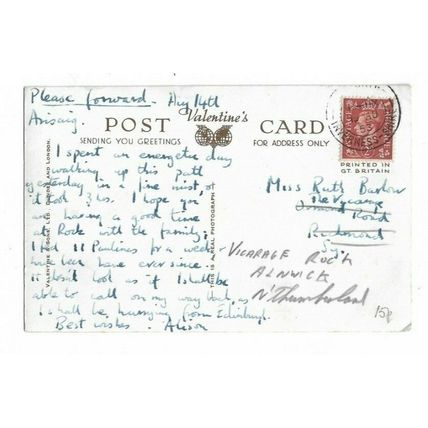 Please forward. Aug 14th
Arisaig.
POST Valentine's CARD
SENDING YOU GREETINGS FOR ADDRESS ONLY
PRINTED IN
GT. BRITAIN
I spent an energetic day
walking up this Path
yesterday in a fine mist, it
took 3 hrs. I hope you
are having a good time
at Rock with the family.
I had 11 Paulines for a week
have been here ever since.
It doesn't look as if I shall be
able to call on my way back as
I shall be hurrying from Edinburgh.
Best wishes. Alison
Miss Ruth Barlow
Road
Richmond
Sy.
VICARAGE ROCK
ALNWICK
N'Thumberland
15p
VALENTINE & SONS, LTD. DUNDEE AND LONDON.
THIS IS A REAL PHOTOGRAPH
INVERNESS-SHIRE